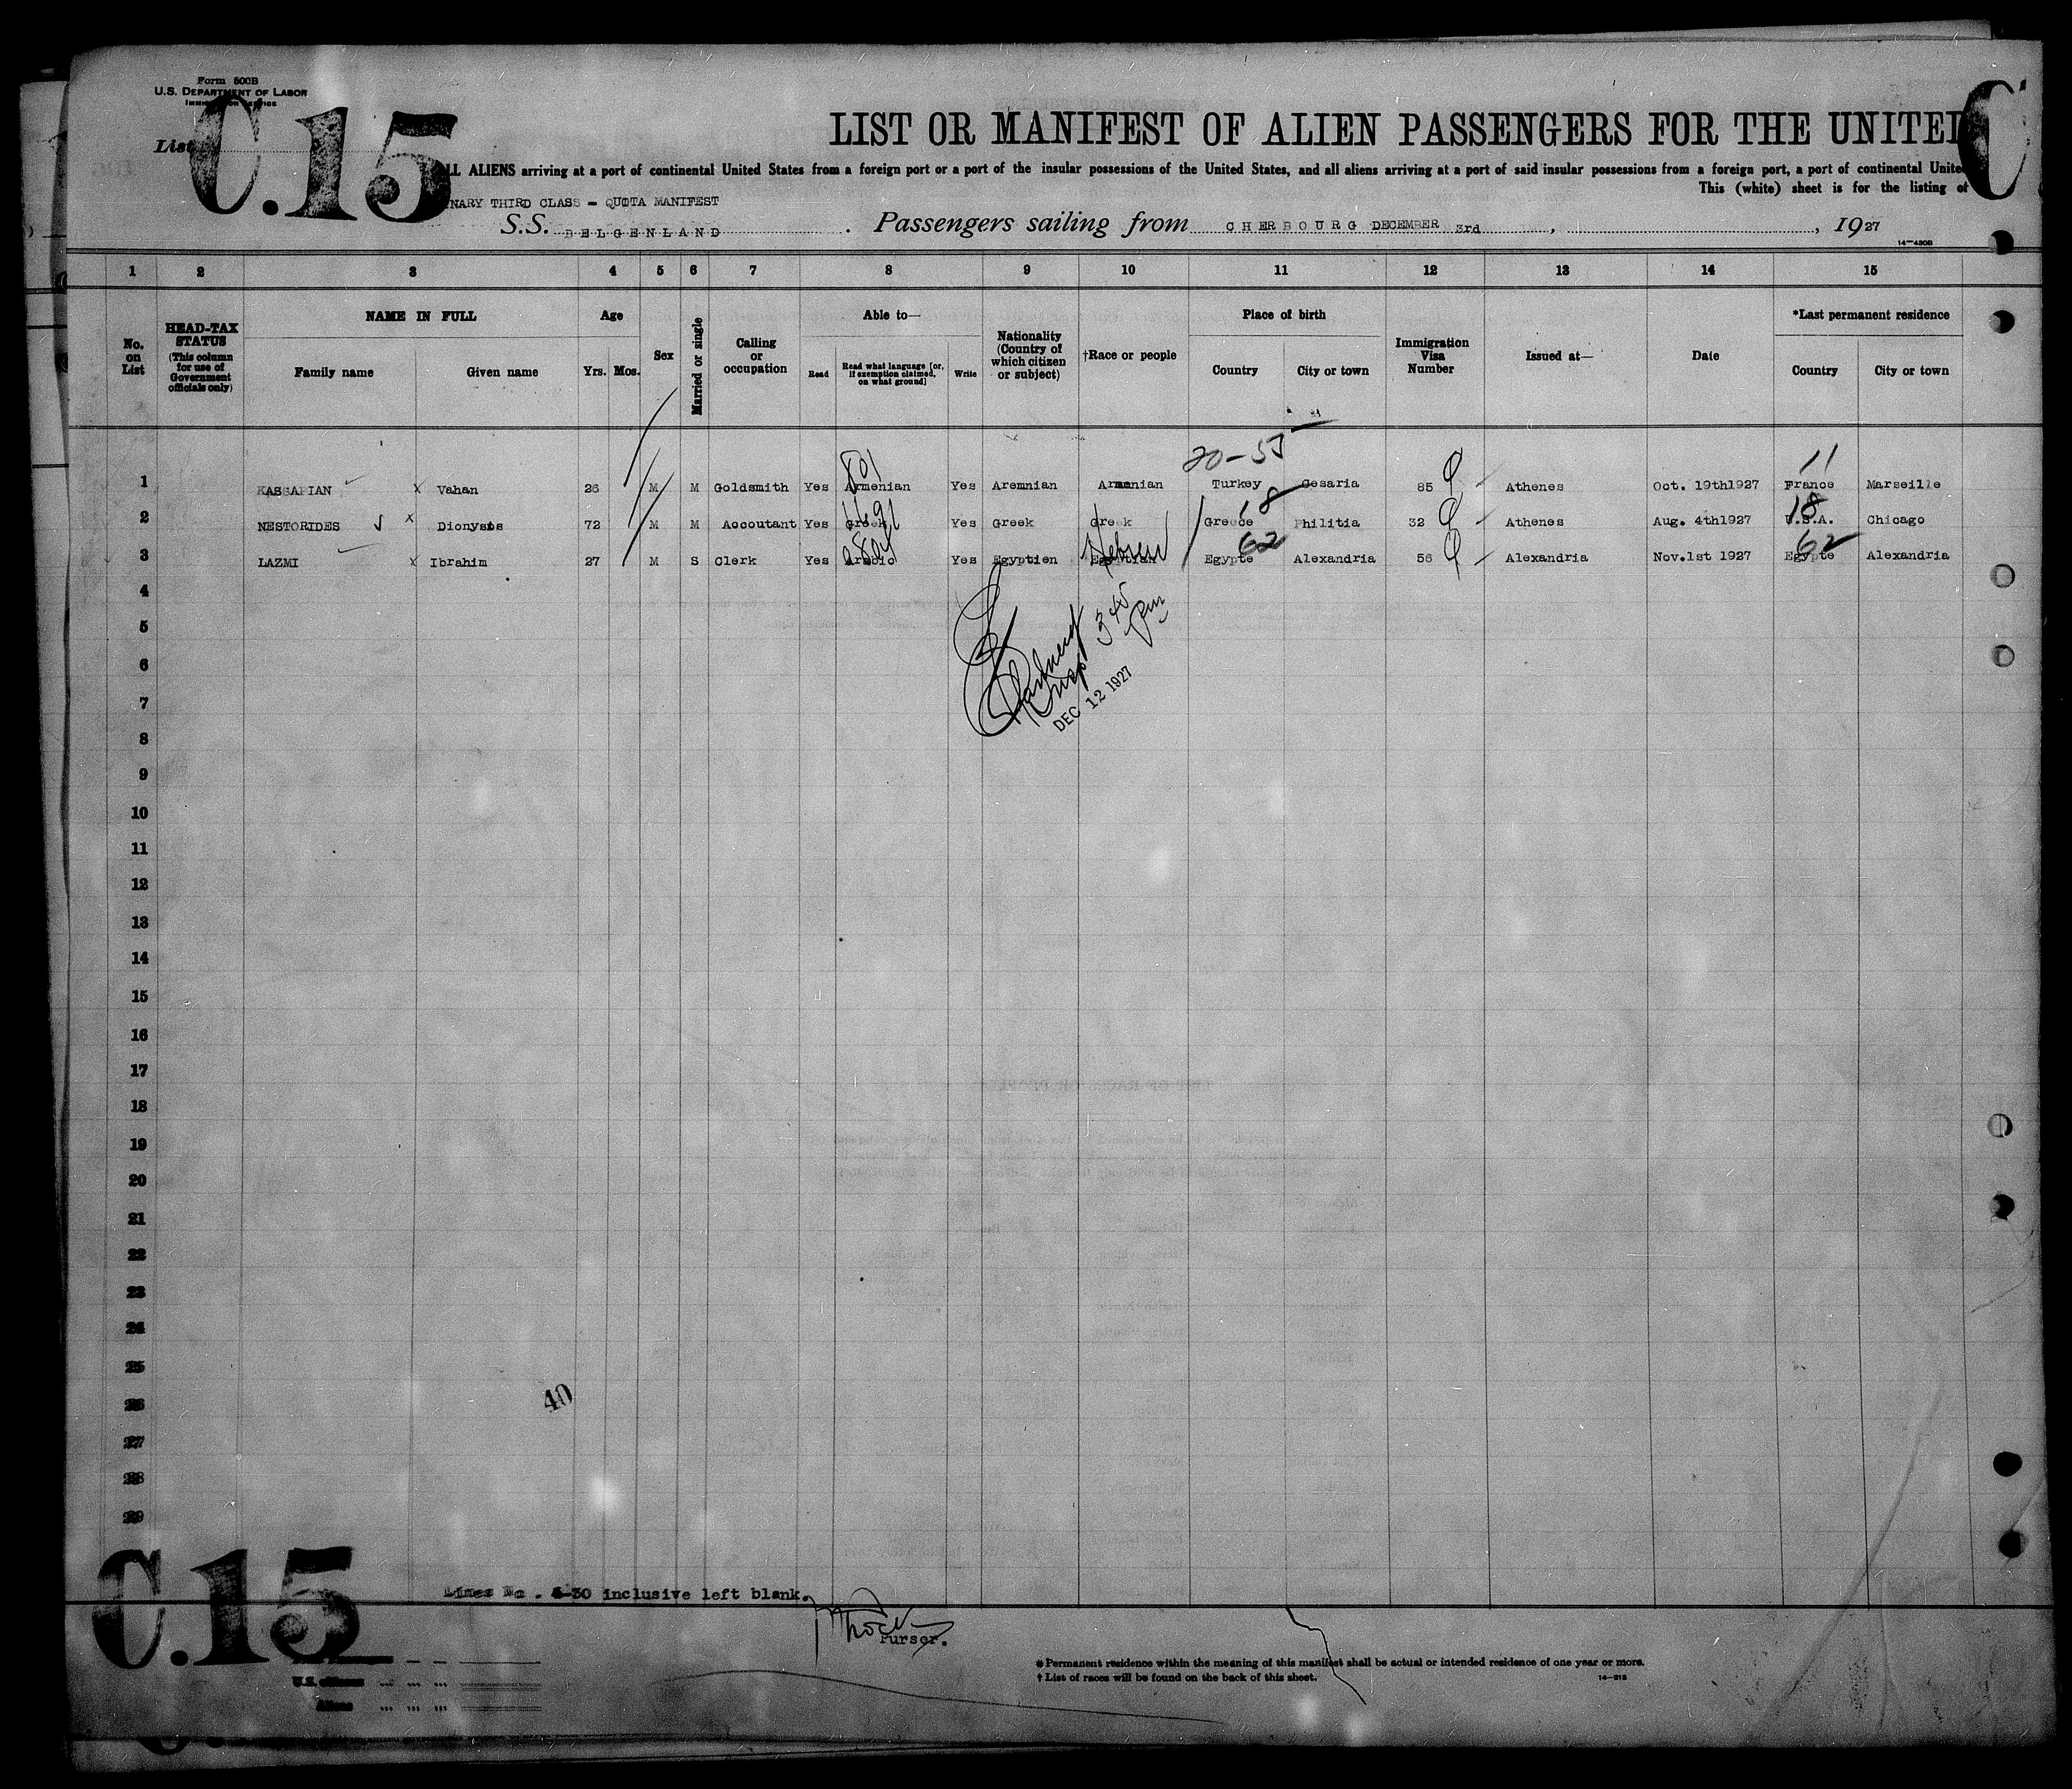 Form 500B
U.S. DEPARTMENT OF LABOR
IMMIGRATION SERVICE
List
C.15
C
LIST OR MANIFEST OF ALIEN PASSENGERS FOR THE UNITED
ALL ALIENS arriving at a port of continental United States from a foreign port or a port of the insular possessions of the United States, and all aliens arriving at a port of said insular possessions from a foreign port, a port of continental United
This (white) sheet is for the listing of
NARY THIRD CLASS - QUOTA MANIFEST
S.S. BELGENLAND . Passengers sailing from CHERBOURG DECEMBER 3rd , , 1927
14-430B
1 2 3 4 5 6 7 8 9 10 11 12 13 14 15
No. on List
HEAD-TAX STATUS (This column for use of Government officials only)
NAME IN FULL
Family name Given name
Age
Yrs. Mos.
Sex
Married or single
Calling or occupation
Able to—
Read Read what language [or, if exemption claimed, on what ground] Write
Nationality (Country of which citizen or subject)
†Race or people
Place of birth
Country City or town
Immigration Visa Number
Issued at—
Date
*Last permanent residence
Country City or town
20-55 11
1 KASSAPIAN x Vahan 26 M M Goldsmith Yes Armenian Yes Aremnian Armenian Turkey Cesaria 85 Athenes Oct. 19th1927 France Marseille
801
18 18
2 NESTORIDES x Dionysos 72 M M Accoutant Yes Greek Yes Greek Greek Greece Philitia 32 Athenes Aug. 4th1927 U.S.A. Chicago
62 62
3 LAZMI x Ibrahim 27 M S Clerk Yes Arabic Yes Egyptien Egyptian Hebrew Egypte Alexandria 56 Alexandria Nov.1st 1927 Egypte Alexandria
4
3 45 pm
5
6
7
DEC 12 1927
8
9
10
11
12
13
14
15
16
17
18
19
20
21
22
23
24
25
26
40
27
28
29
C.15
Lines No . 4-30 inclusive left blank.
Purser.
* Permanent residence within the meaning of this manifest shall be actual or intended residence of one year or more.
† List of races will be found on the back of this sheet.
14-213
U.S. citizens
Aliens